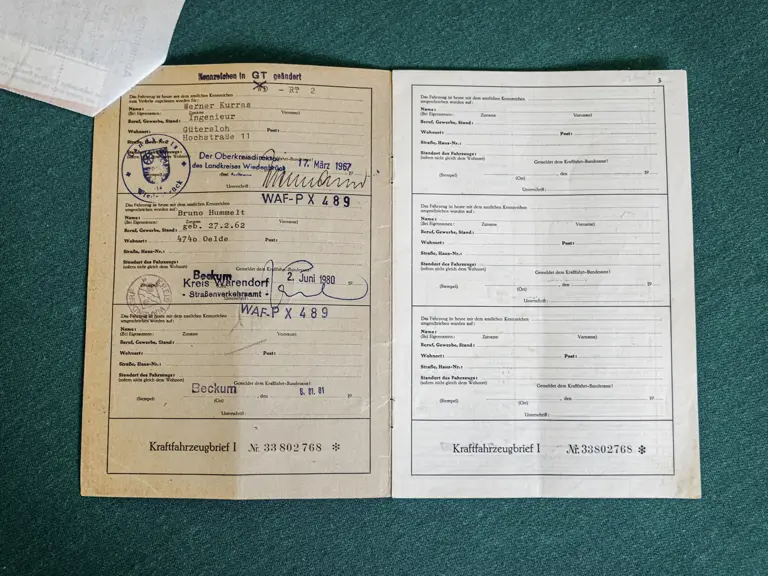 Kennzeichen in GT geändert
WD - RT 2
Das Fahrzeug ist heute mit dem amtlichen Kennzeichen
zum Verkehr zugelassen worden für:
Name: Werner Kurras
(Bei Eigennamen: Zuname Vorname)
Beruf, Gewerbe, Stand: Ingenieur
Wohnort: Gütersloh Post:
Straße, Haus-Nr.: Hochstraße 11
Standort des Fahrzeugs:
Der Oberkreisdirektor
des Landkreises Wiedenbrück
17. März 1967
Unterschrift:
WAF-PX 489
Das Fahrzeug ist heute mit dem amtlichen Kennzeichen
umgeschrieben worden auf:
Name: Bruno Hummelt
(Bei Eigennamen: Zuname Vorname)
Beruf, Gewerbe, Stand: geb. 27.2.62
Wohnort: 4740 Oelde Post:
Straße, Haus-Nr.:
Standort des Fahrzeugs:
(sofern nicht gleich dem Wohnort)
Gemeldet dem Kraftfahrt-Bundesamt!
Beckum 2. Juni 1980
Kreis Warendorf
- Straßenverkehrsamt -
WAF-PX 489
Das Fahrzeug ist heute mit dem amtlichen Kennzeichen
umgeschrieben worden auf:
Name:
(Bei Eigennamen: Zuname Vorname)
Beruf, Gewerbe, Stand:
Wohnort: Post:
Straße, Haus-Nr.:
Standort des Fahrzeugs:
(sofern nicht gleich dem Wohnort)
Gemeldet dem Kraftfahrt-Bundesamt!
Beckum , den 01. 81 19
(Stempel) (Ort)
Unterschrift:
Kraftfahrzeugbrief I Nr. 33802768 *
Das Fahrzeug ist heute mit dem amtlichen Kennzeichen
umgeschrieben worden auf:
Name:
(Bei Eigennamen: Zuname Vorname)
Beruf, Gewerbe, Stand:
Wohnort: Post:
Straße, Haus-Nr.:
Standort des Fahrzeugs:
(sofern nicht gleich dem Wohnort)
Gemeldet dem Kraftfahrt-Bundesamt!
, den 19
(Stempel) (Ort)
Unterschrift:
Das Fahrzeug ist heute mit dem amtlichen Kennzeichen
umgeschrieben worden auf:
Name:
(Bei Eigennamen: Zuname Vorname)
Beruf, Gewerbe, Stand:
Wohnort: Post:
Straße, Haus-Nr.:
Standort des Fahrzeugs:
(sofern nicht gleich dem Wohnort)
Gemeldet dem Kraftfahrt-Bundesamt!
, den 19
(Stempel) (Ort)
Unterschrift:
Das Fahrzeug ist heute mit dem amtlichen Kennzeichen
umgeschrieben worden auf:
Name:
(Bei Eigennamen: Zuname Vorname)
Beruf, Gewerbe, Stand:
Wohnort: Post:
Straße, Haus-Nr.:
Standort des Fahrzeugs:
(sofern nicht gleich dem Wohnort)
Gemeldet dem Kraftfahrt-Bundesamt!
, den 19
(Stempel) (Ort)
Unterschrift:
Kraftfahrzeugbrief I Nr. 33802768 *